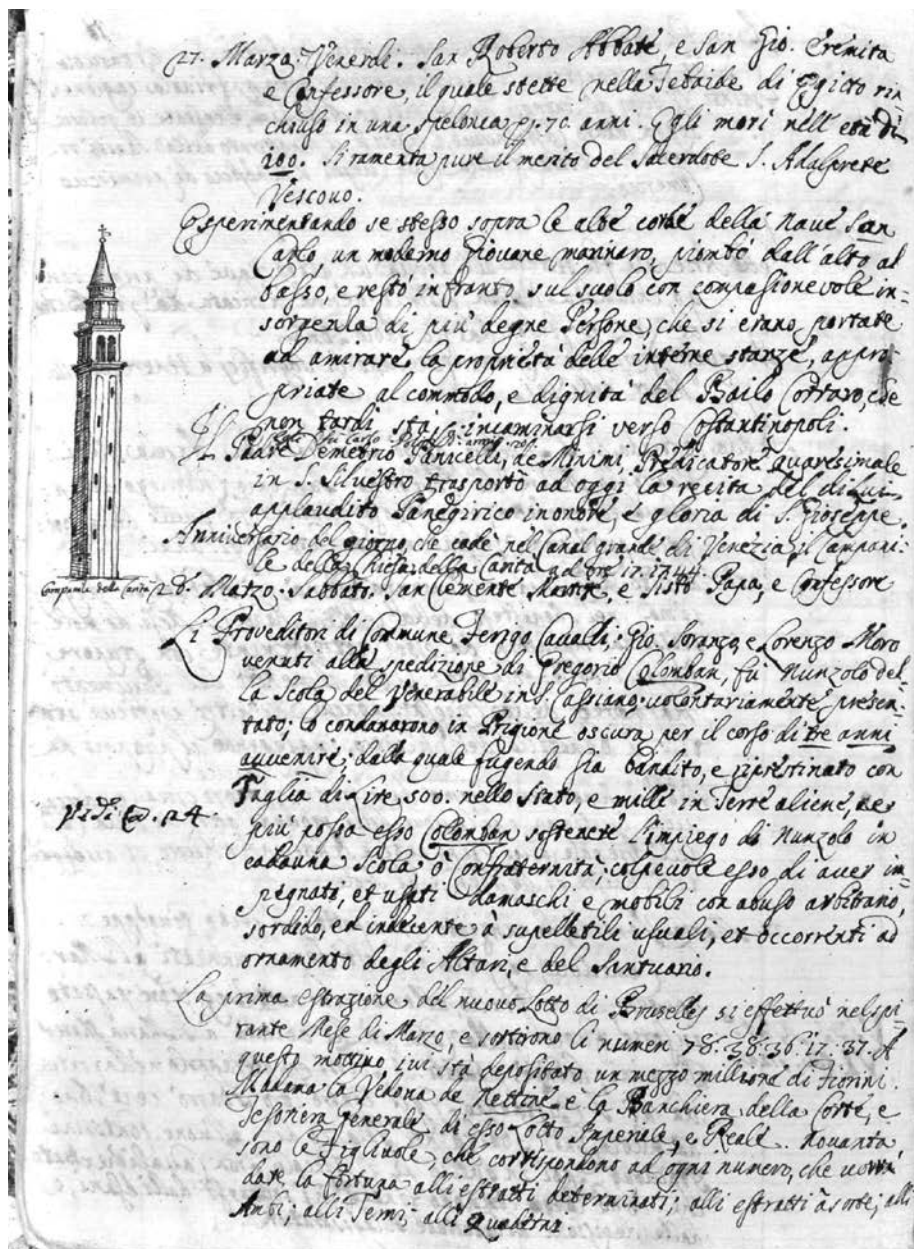 27. Marzo. Venerdi. San Roberto Abbate, e San Gio. Eremita
e Confessore, il quale stette nella Tebaide di Egitto rin
chiuso in una Spelonca pj. 70. anni. Egli morì nell' età di
100. Si ramenta pure il merito del Sacerdote S. Adalprete
Vescovo.
Esperimentando se stesso sopra le alte corbe della nave San
Carlo, un moderno Giovane marinaro, piombò dall'alto al
basso, e restò infranto sul suolo con compassionevole in=
sorpenla di più degne Persone, che si erano portate
ad amirare la proprietà delle interne stanze, appro
priate al commodo, e dignità del Bailo Corraro, che
non tardi stà incaminarsi verso Costantinopoli.
Il Padre Demetrio Panicelli, de Minimi, Predicatore quaresimale
in S. Silvestro trasportò ad oggi la recita del di Lui
applaudito Panegirico in onore, e gloria di S. Gioseppe.
Anniversario del giorno, che cadè nel Canal grande di Venezia il Campani
le della Chiesa della Carità ad ore 17. 1744.
Campanile della Carità
28. Marzo. Sabbato. San Clemente Martire, e Sisto Papa, e Confessore
Li Proveditori di Commune Ferigo Cavalli, Gio. Soranzo, e Lorenzo Moro
venuti alla spedizione di Gregorio Colomban, fù Nunzolo del
la Scola del Venerabile in S. Cassiano, volontariamente presen
tato; lo condanarono in Prigione oscura per il corso di tre anni
avvenire; dalla quale fugendo sia bandito, e ripristinato con
Taglia di Lire 500. nello Stato, e mille in Terre aliene, ne
più possa esso Colomban sostenere l'impiego di Nunzolo in
cadauna Scola, ò Confraternità; colpevole esso di aver im
pegnati, et usati damaschi e mobili con abuso arbitrario,
sordido, ed indecente à supelletili usuali, et occorrenti ad
ornamento degli Altari, e del Santuario.
La prima estrazione del nuovo Lotto di Bruselles si effettuò nel spi
rante Mese di Marzo, e sortirono li numeri 78. 38. 36. 17. 37. A
questo mottivo ivi stà depositato un mezzo millione di Fiorini.
Madama la Vedova de Nettine e la Banchiera della Corte, e
Tesoriera generale di esso Lotto Imperiale, e Reale. Novanta
sono le Figliuole, che corrispondono ad ogni numero, che verrà
date la fortuna alli estratti determinati; alli estratti à sorte; alli
Ambi; alli Terni; alli Quaderni.